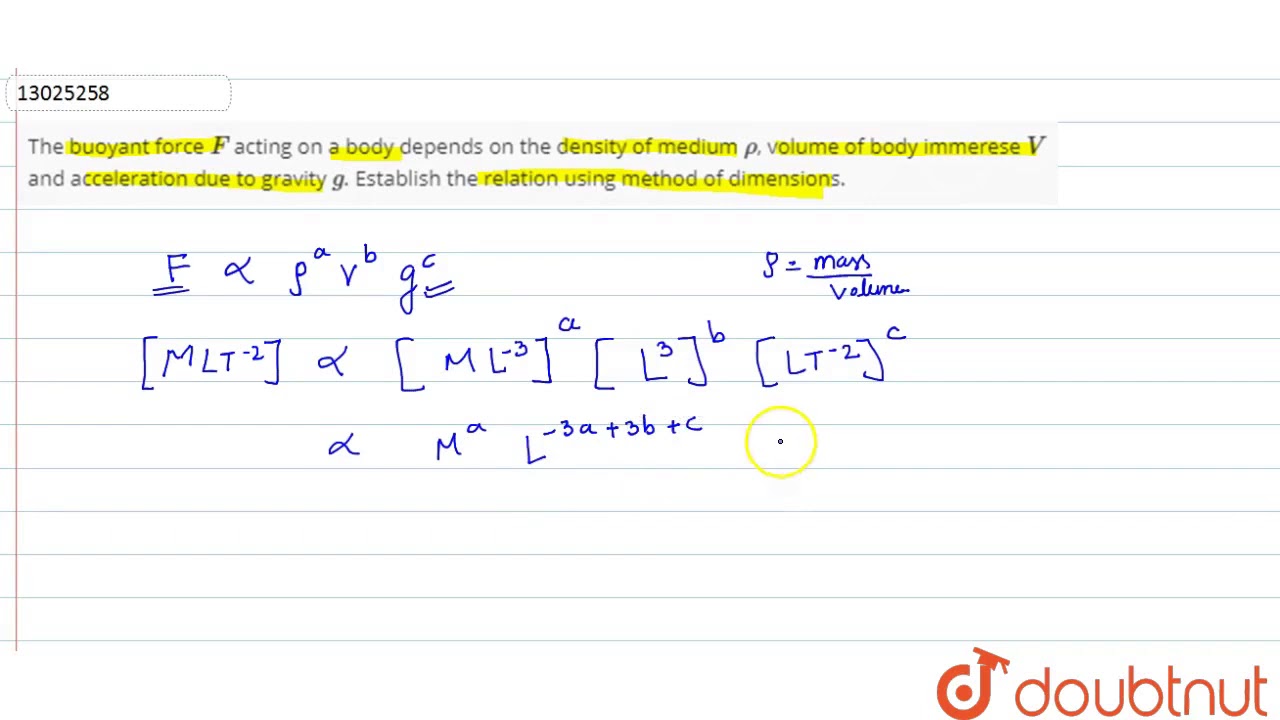 13025258
The buoyant force F acting on a body depends on the density of medium ρ, volume of body immerese V
and acceleration due to gravity g. Establish the relation using method of dimensions.
F ∝ ρ^a V^b g^c
ρ = mass / Volume
[MLT^-2] ∝ [ML^-3]^a [L^3]^b [LT^-2]^c
∝ M^a L^-3a+3b+c
doubtnut